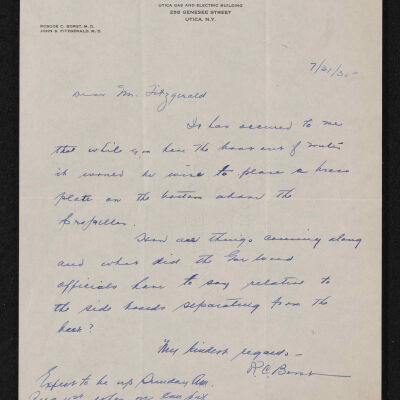 UTICA GAS AND ELECTRIC BUILDING
258 GENESEE STREET
UTICA, N.Y.
ROSCOE C. BORST, M.D.
JOHN B. FITZGERALD, M.D.
7/21/35
Dear Mr. Fitzgerald
It has occured to me
that while you have the boat out of water
it would be wise to place a brass
plate on the bottom above the
Propeller.
How are things coming along
and what did the Gar wood
officials have to say relative to
the side boards separating from the
keel?
My kindest regards -
R C Borst
Expect to be up Sunday Am.